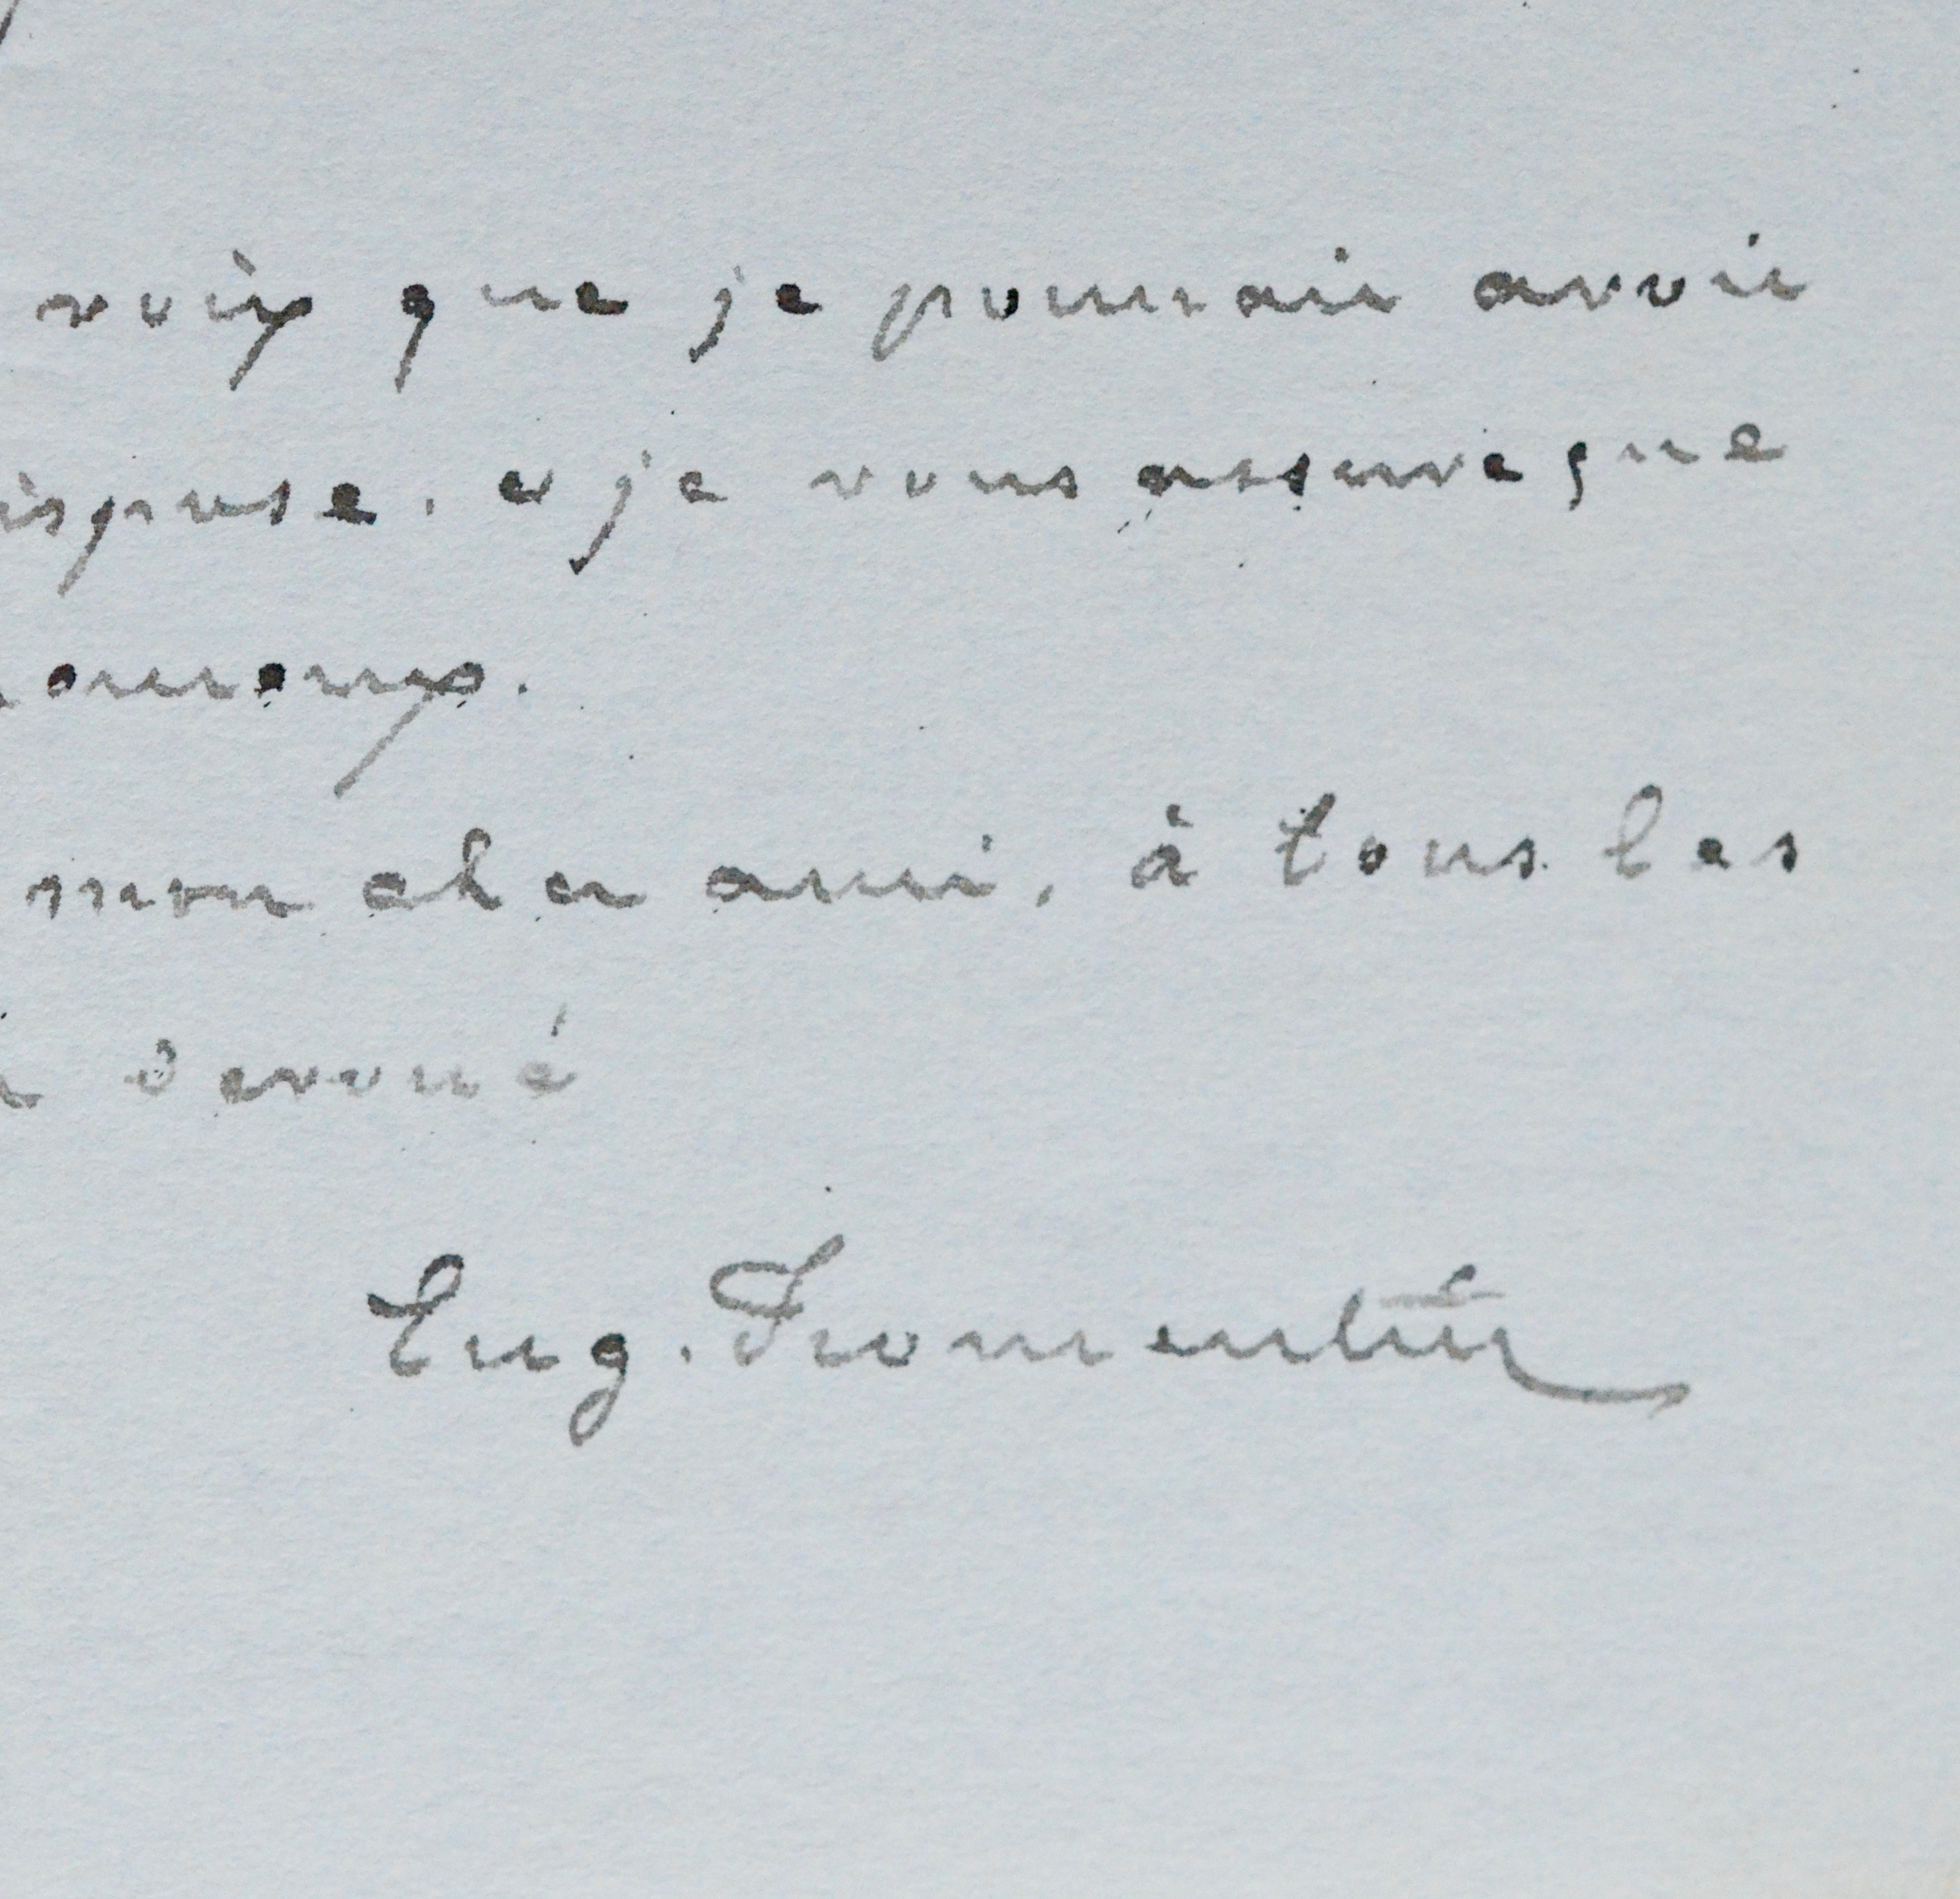 voix que je pourrais avoir
ispose. et je vous assure que
mon cher ami, à tous les
dévoué
Eug. Fromentin